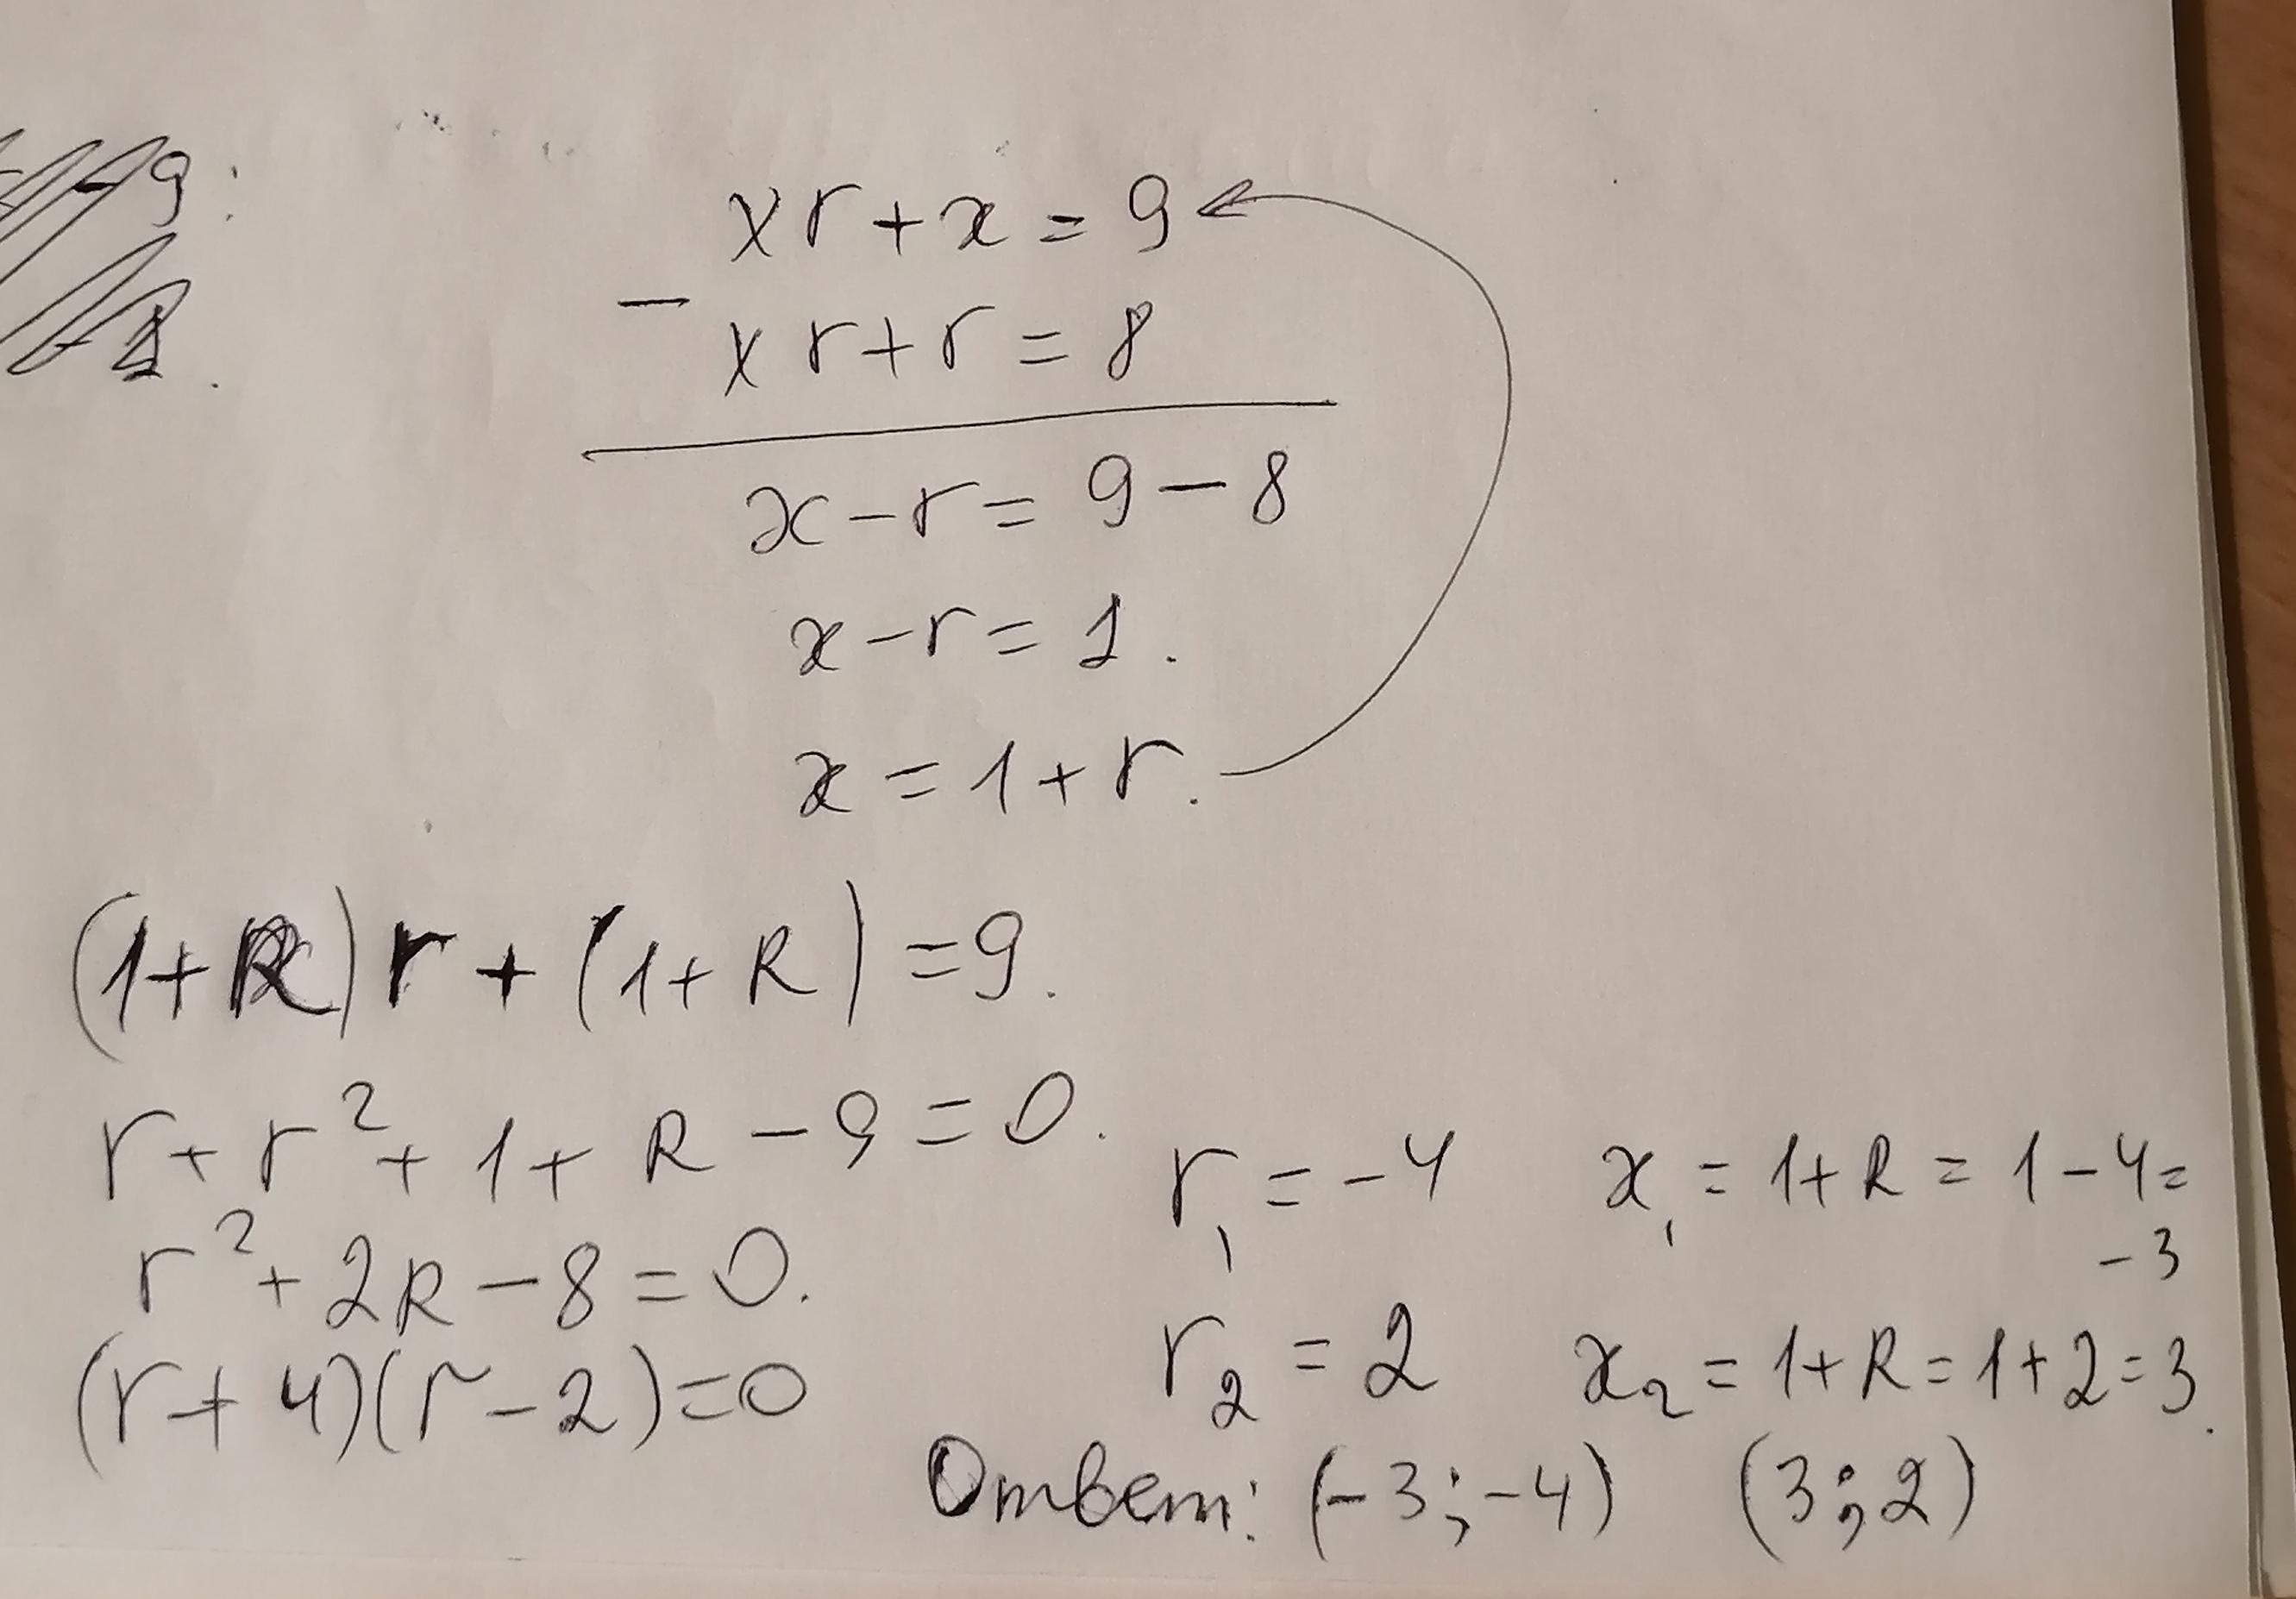 xr + x = 9
- xr + r = 8
x - r = 9 - 8
x - r = 1.
x = 1 + r.
(1 + R) r + (1 + R) = 9.
r + r² + 1 + R - 9 = 0.
r² + 2R - 8 = 0.
(r + 4)(r - 2) = 0
r₁ = -4 x₁ = 1 + R = 1 - 4 =
-3
r₂ = 2 x₂ = 1 + R = 1 + 2 = 3.
Ответ: (-3; -4) (3; 2)